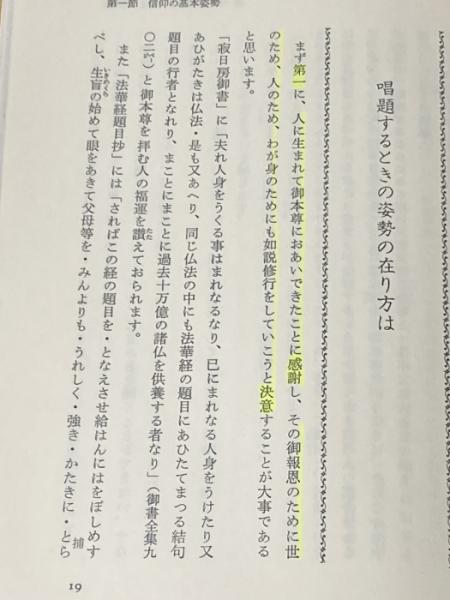 第一節　信仰の基本姿勢
唱題するときの姿勢の在り方は
まず第一に、人に生まれて御本尊におあいできたことに感謝し、その御報恩のために世
のため、人のため、わが身のためにも如説修行をしていこうと決意することが大事である
と思います。
「寂日房御書」に「夫れ人身をうくる事はまれなるなり、已にまれなる人身をうけたり又
あひがたきは仏法・是も又あへり、同じ仏法の中にも法華経の題目にあひたてまつる結句
題目の行者となれり、まことにまことに過去十万億の諸仏を供養する者なり」（御書全集九
〇二㌻）と御本尊を拝む人の福運を讃えておられます。
たた
また「法華経題目抄」には「さればこの経の題目を・となえさせ給はんにはをぼしめす
べし、生盲の始めて眼をあきて父母等を・みんよりも・うれしく・強き・かたきに・とら
いきめくら
捕
19